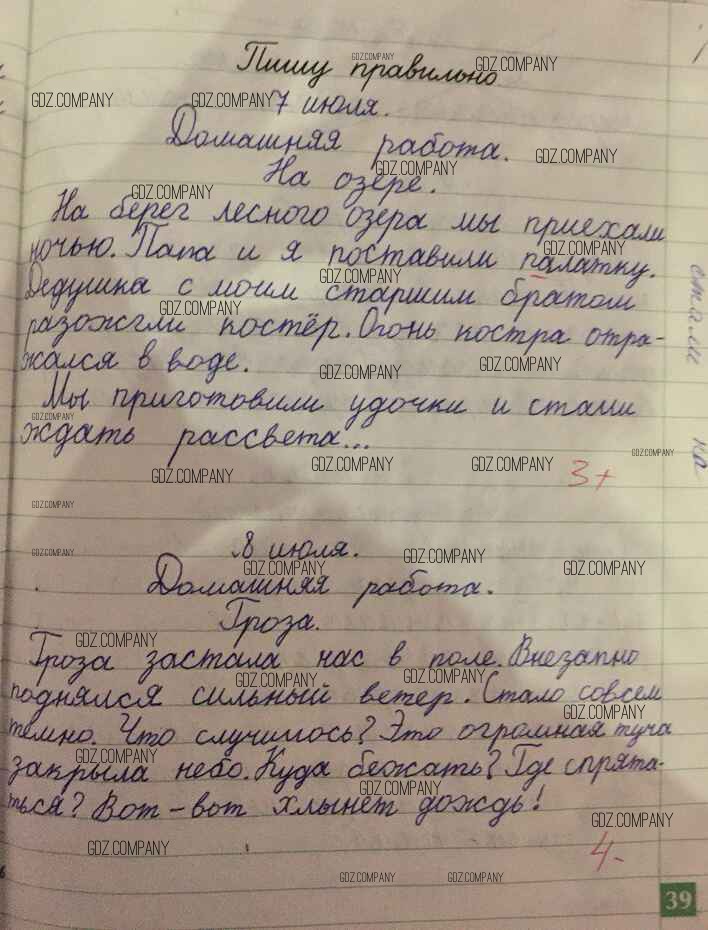 Пишу правильно
7 июля.
Домашняя работа.
На озере.
На берег лесного озера мы приехали
ночью. Папа и я поставили палатку.
Дедушка с моим старшим братом
разожгли костёр. Огонь костра отра-
жался в воде.
Мы приготовили удочки и стали
ждать рассвета...
3+
8 июля.
Домашняя работа.
Гроза.
Гроза застала нас в поле. Внезапно
поднялся сильный ветер. Стало совсем
темно. Что случилось? Это огромная туча
закрыла небо. Куда бежать? Где спрята-
ться? Вот-вот хлынет дождь!
4-
39
стали
ка
GDZ.COMPANY